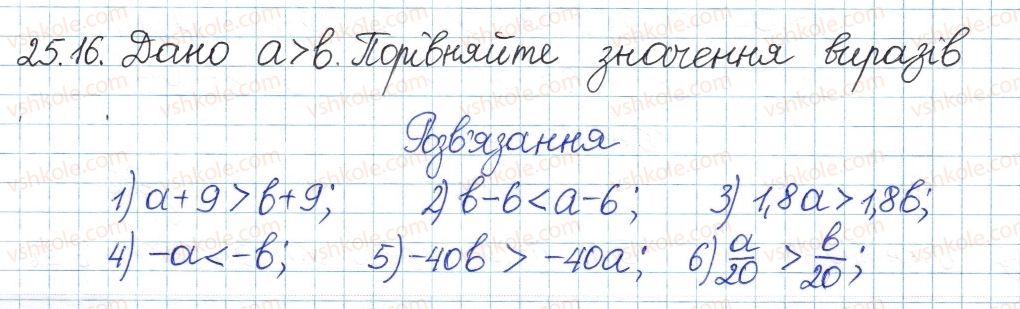 25.16. Дано a>b. Порівняйте значення виразів
Розв'язання
1) a+9>b+9; 2) b-6<a-6; 3) 1,8a>1,8b;
4) -a<-b; 5) -40b > -40a; 6) a/20 > b/20;